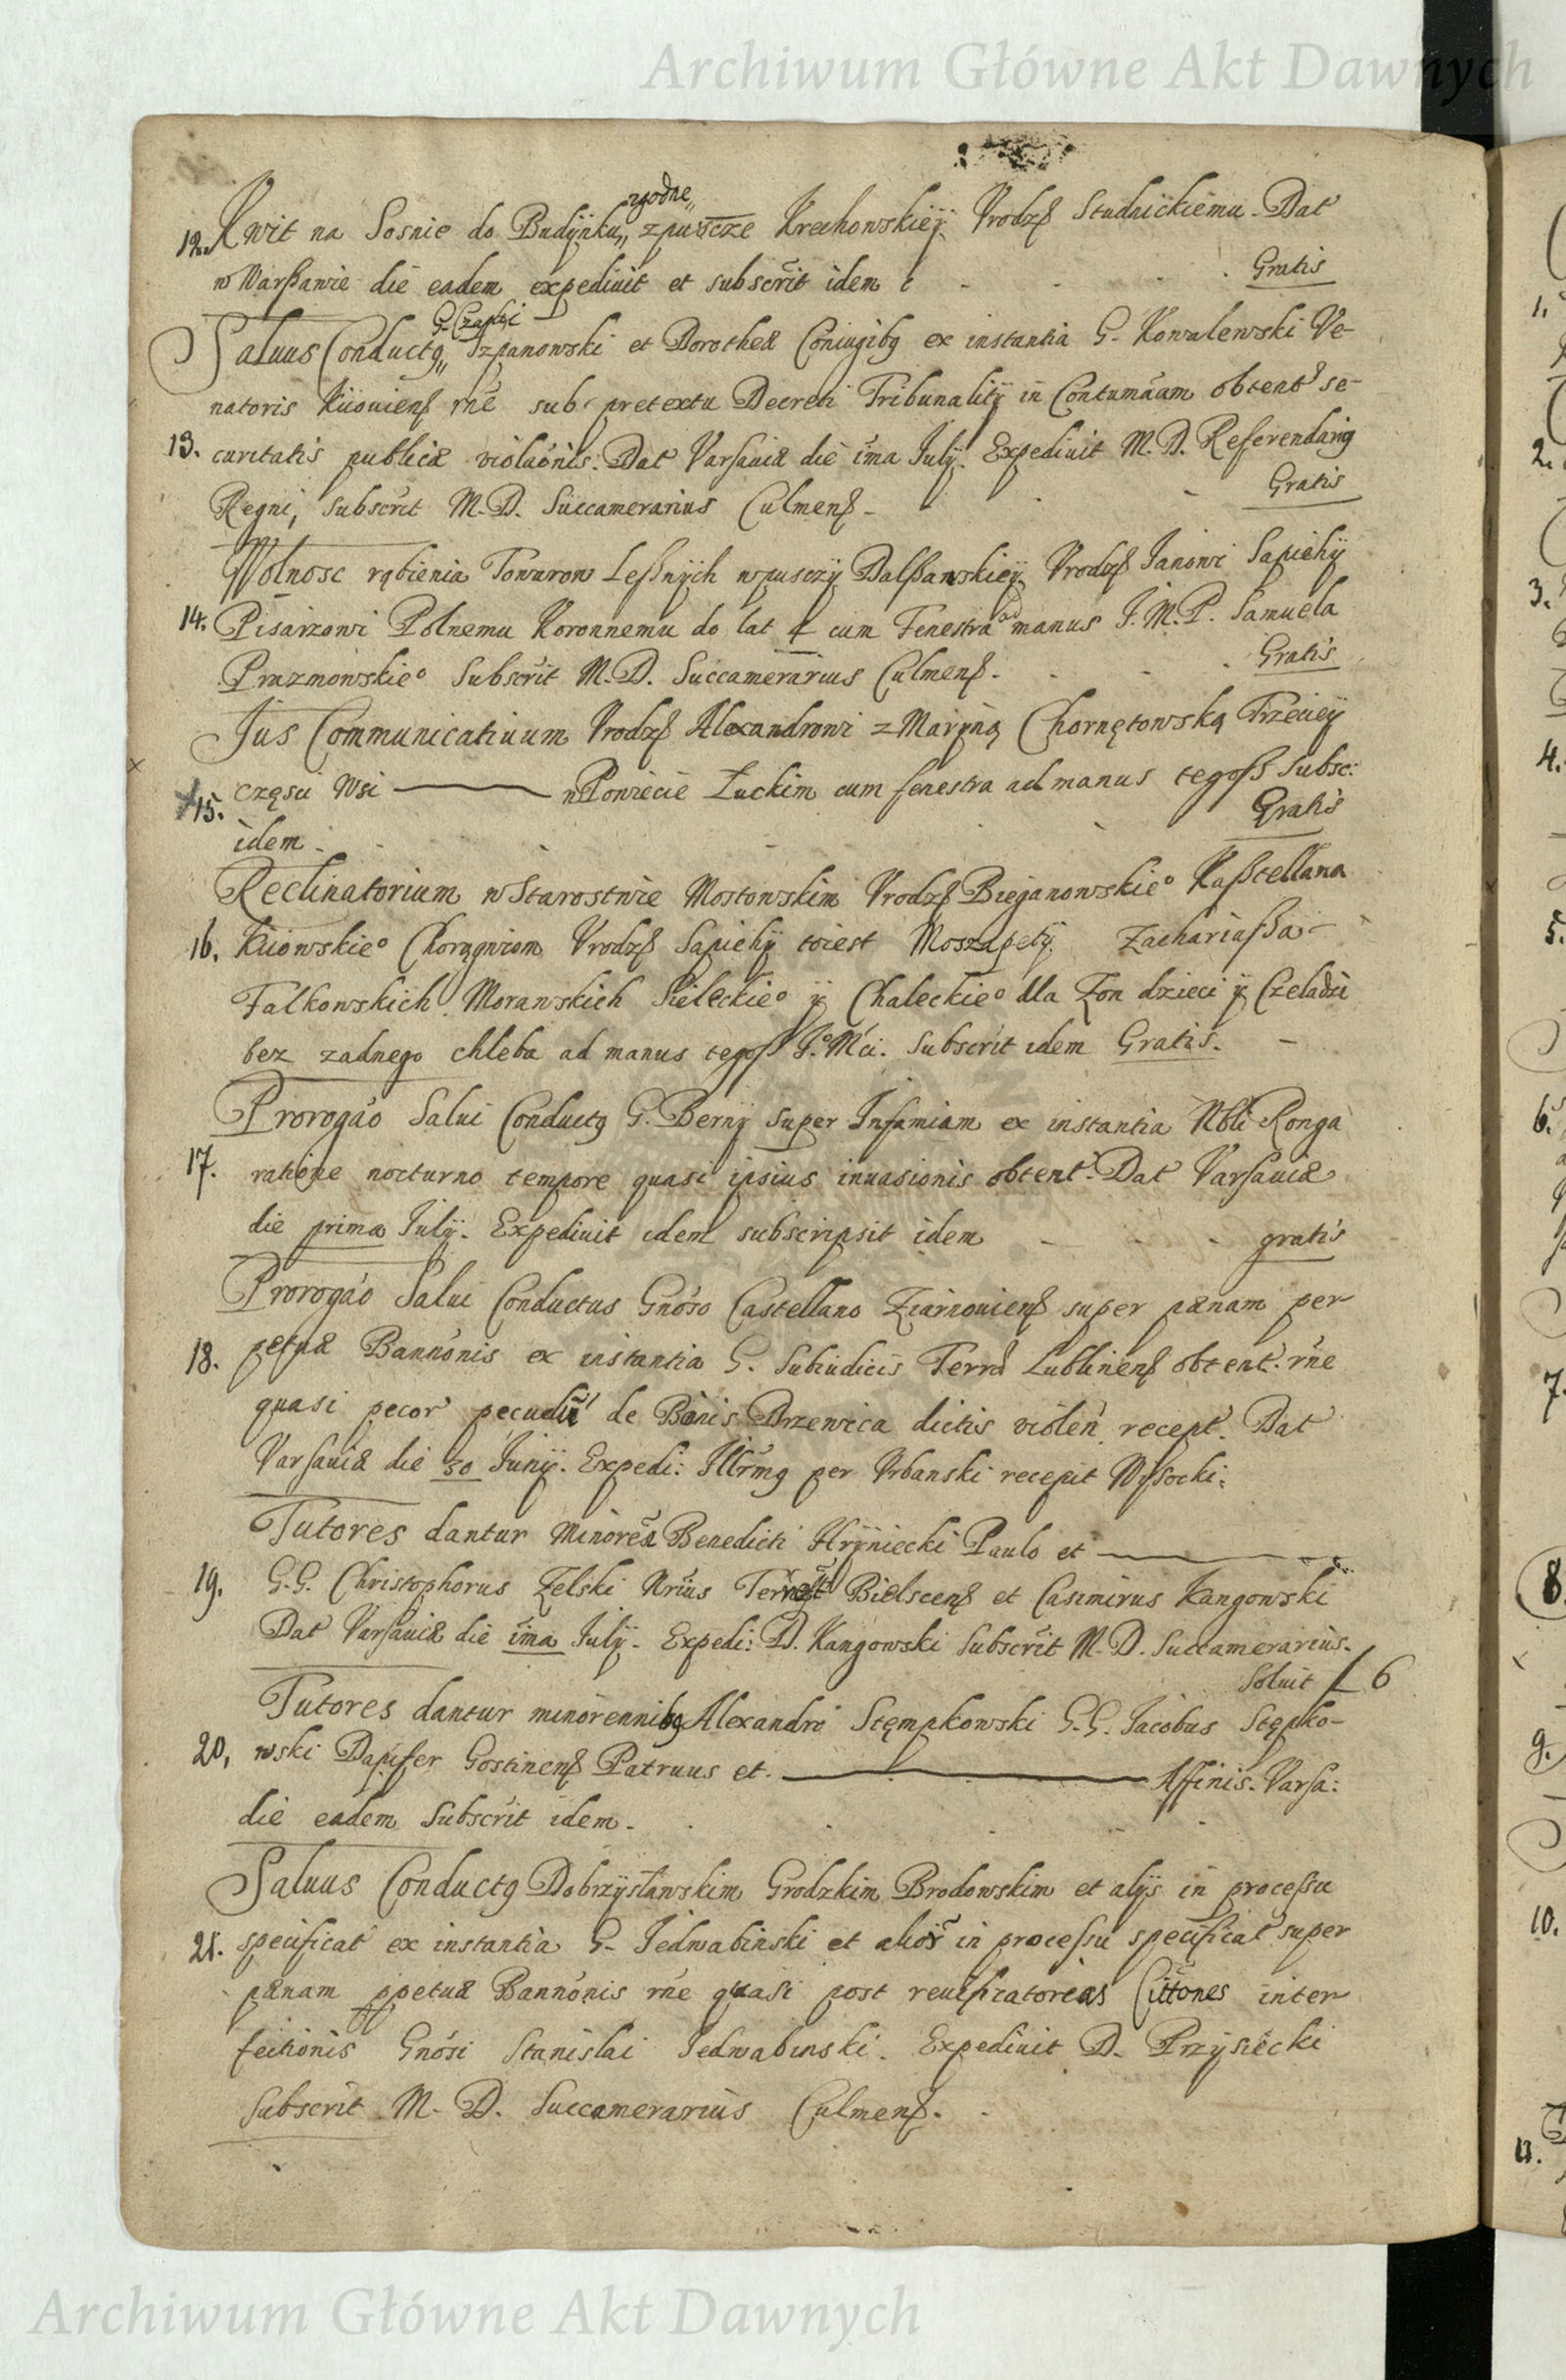 Archiwum Główne Akt Dawnych
zgodne„
12. Kwit na Sosnie do Budÿnku„ zpuscze Krechowskieÿ Vrodzß Studnickiemu. Dat
w Warßawie die eadem expediuit et subscrit idem Gratis
G. Czapli
Saluus Conductq„ Szpanowski et Dorotheæ Coniugibq ex instantia G. Kowalewski Ve-
natoris Kiiouienß rne sub pretextu Decreti Tribunalitÿ in Contumaam obtent se-
13. curitatis publicæ violaonis. Dat Varsauiæ die ima Julÿ. Expediuit M. D. Referendariq
Regni, subscrit M. D. Succamerarius Culmenß. Gratis
Wolnosc rąbienia Towarow Leßnÿch wpusczÿ Dalßawskieÿ Vrodzß Janowi Sapiehÿ
14. Pisarzowi Polnemu Koronnemu do lat 4 cum Fenestra ad manus J. M. P. Samuela
Prazmowskieo Subscrit M. D. Succamerarius Culmenß. Gratis
Jus Communicatiuum Vrodzß Alexandrowi z Marÿną Chornętowską Trzecieÿ
15. częsci Wsi —— w Powiecie Łuckim cum fenestra ad manus tegoß Subsc:
idem. Gratis
Reclinatorium w Starostwie Mostowskim Vrodzß Bieganowskieo Kaßtellana
16. Kiiowskieo Chorągwiom Vrodzß Sapiehÿ toiest Moszapetÿ Zachariaßa
Falkowskich, Morawskich Sieleckieo ÿ Chaleckieo dla Zon dzieci ÿ Czeladzi
bez zadnego chleba ad manus tegoß Jo Mci. Subscrit idem Gratis.
Prorogao Salui Conductq G. Bernÿ super Infamiam ex instantia Nbli Ronga
17. ratione nocturno tempore quasi ipsius inuasionis obtent. Dat Varsauiæ
die prima Julÿ. Expediuit idem subscripsit idem gratis
Prorogao Salui Conductus Gnoso Castellano Ziarnouienß super pænam per-
18. petuæ Bannonis ex instantia G. Subiudicis Terræ Lublinenß obtent. rne
quasi pecor pecudu de Bonis Drzewica dictis violen recept. Dat
Varsauiæ die 30 Junÿ. Expedi: Illrmq per Vrbanski recepit Wÿsocki.
Tutores dantur Minores Benedicti Hrÿniecki Paulo et ——
19. G. G. Christophorus Zelski Nrius Terrest Bielscenß et Casimirus Kangowski
Dat Varsauiæ die ima Julÿ. Expedi: D. Kangowski Subscrit M. D. Succamerarius.
Soluit f 6
Tutores dantur minorennibq Alexandri Stęmpkowski G. G. Jacobus Stępko-
20. wski Dapifer Gostinenß Patruus et. —— Affinis. Varsa:
die eadem Subscrit idem.
Saluus Conductq Dobrzÿsławskim Grodzkim Brodowskim et alÿs in processu
21. specificat ex instantia G. Jedwabinski et alior in processu specificat super
pænam ppetuæ Bannonis rne quasi post reuisicatorias Cittones inter
fectionis Gnosi Stanislai Jedwabinski. Expediuit D. Przÿsiecki
Subscrit M. D. Succamerarius Culmenß.
1.
2.
3.
4.
5.
6.
7.
8
9.
10.
11.
Archiwum Główne Akt Dawnych